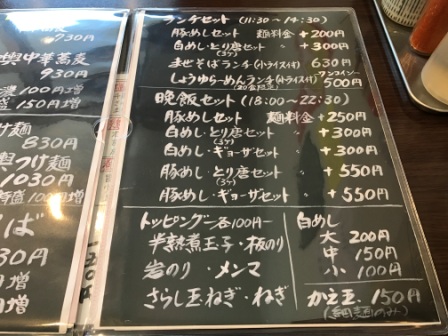 中華蕎麦
930円
930円
100円増
盛150円増
つけ麺
830円
つけ麺
1030円
特盛300円増
そば
ランチセット (11:30〜14:30)
豚めしセット 麺料金+200円
白めし・とり唐セット 〃 +300円
(3ケ)
まぜそばランチ(小ライス付) 630円
しょうゆらーめんランチ(小ライス付) ワンコイン 500円
晩飯セット (18:00〜22:30)
豚めしセット 麺料金+250円
白めし・とり唐セット 〃 +300円
(3ケ)
白めし・ギョーザセット 〃 +300円
豚めし・とり唐セット 〃 +550円
(3ケ)
豚めし・ギョーザセット 〃 +550円
トッピング 各100円
半熟煮玉子・板のり
岩のり・メンマ
さらし玉ねぎ・ねぎ
白めし
大 200円
中 150円
小 100円
かえ玉 150円
(細麺のみ)